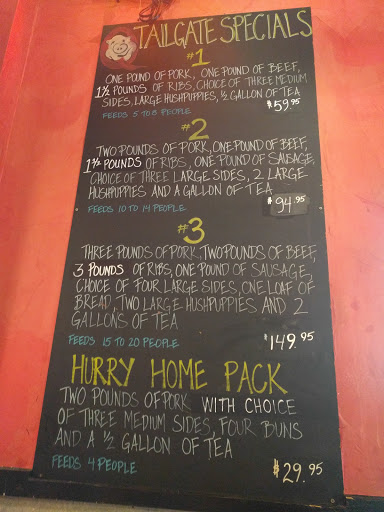 TAILGATE SPECIALS
#1
ONE POUND OF PORK, ONE POUND OF BEEF,
1½ POUNDS OF RIBS, CHOICE OF THREE MEDIUM
SIDES, LARGE HUSHPUPPIES, ½ GALLON OF TEA
FEEDS 5 TO 8 PEOPLE
$59.95
#2
TWO POUNDS OF PORK, ONE POUND OF BEEF,
POUNDS OF RIBS, ONE POUND OF SAUSAGE,
CHOICE OF THREE LARGE SIDES, 2 LARGE
HUSHPUPPIES AND A GALLON OF TEA
FEEDS 10 TO 14 PEOPLE
$94.95
#3
THREE POUNDS OF PORK, TWO POUNDS OF BEEF,
3 POUNDS OF RIBS, ONE POUND OF SAUSAGE,
CHOICE OF FOUR LARGE SIDES, ONE LOAF OF
BREAD, TWO LARGE HUSHPUPPIES AND 2
GALLONS OF TEA
FEEDS 15 TO 20 PEOPLE
$149.95
HURRY HOME PACK
TWO POUNDS OF PORK WITH CHOICE
OF THREE MEDIUM SIDES, FOUR BUNS
AND A ½ GALLON OF TEA
FEEDS 4 PEOPLE
$29.95